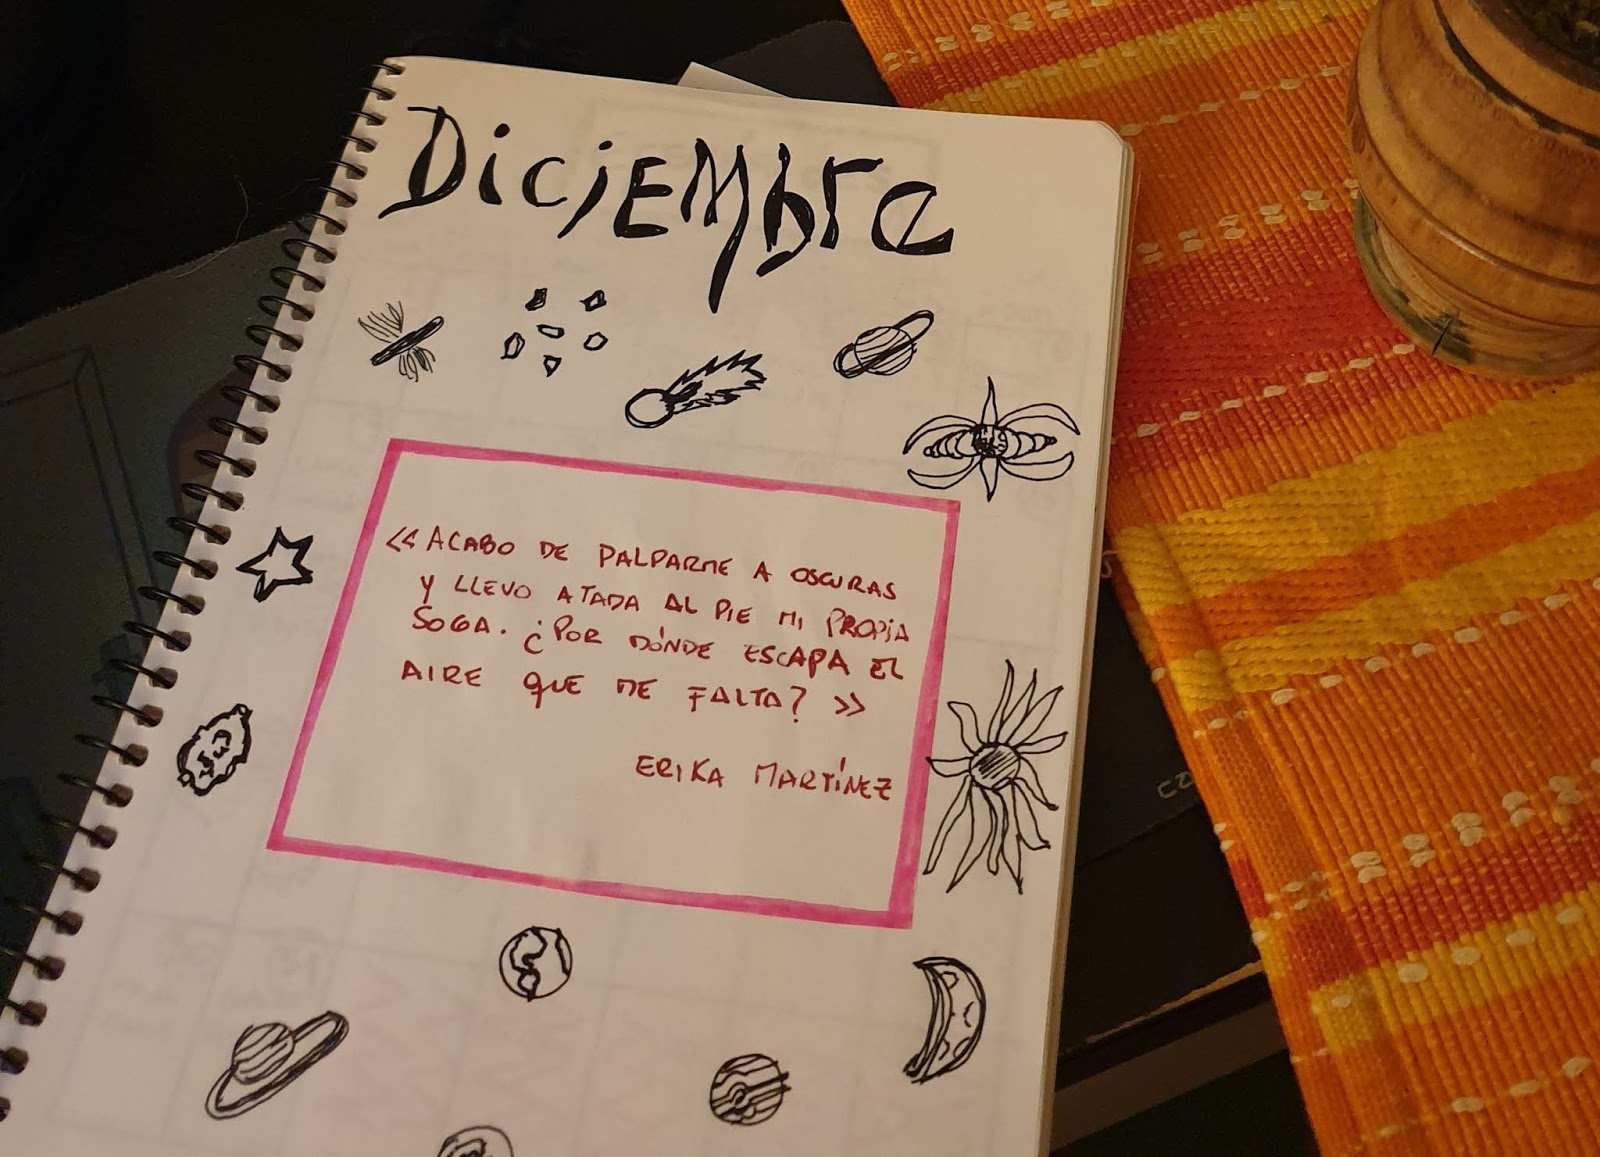 DiciEMbre
<< ACABO DE PALPARME A OSCURAS
Y LLEVO ATADA AL PIE MI PROPIA
SOGA. ¿POR DÓNDE ESCAPA EL
AIRE QUE ME FALTA? >>
ERIKA MARTÍNEZ